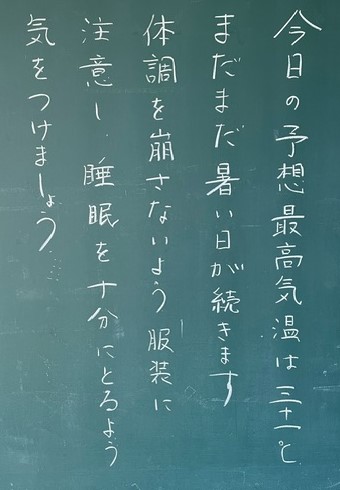 今日の予想最高気温は三十一℃
まだまだ暑い日が続きます
体調を崩さないよう服装に
注意し、睡眠を十分にとるよう
気をつけましょう